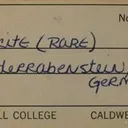 No
CITE (RARE)
derrabenstein
GERM
LL COLLEGE CALDWE